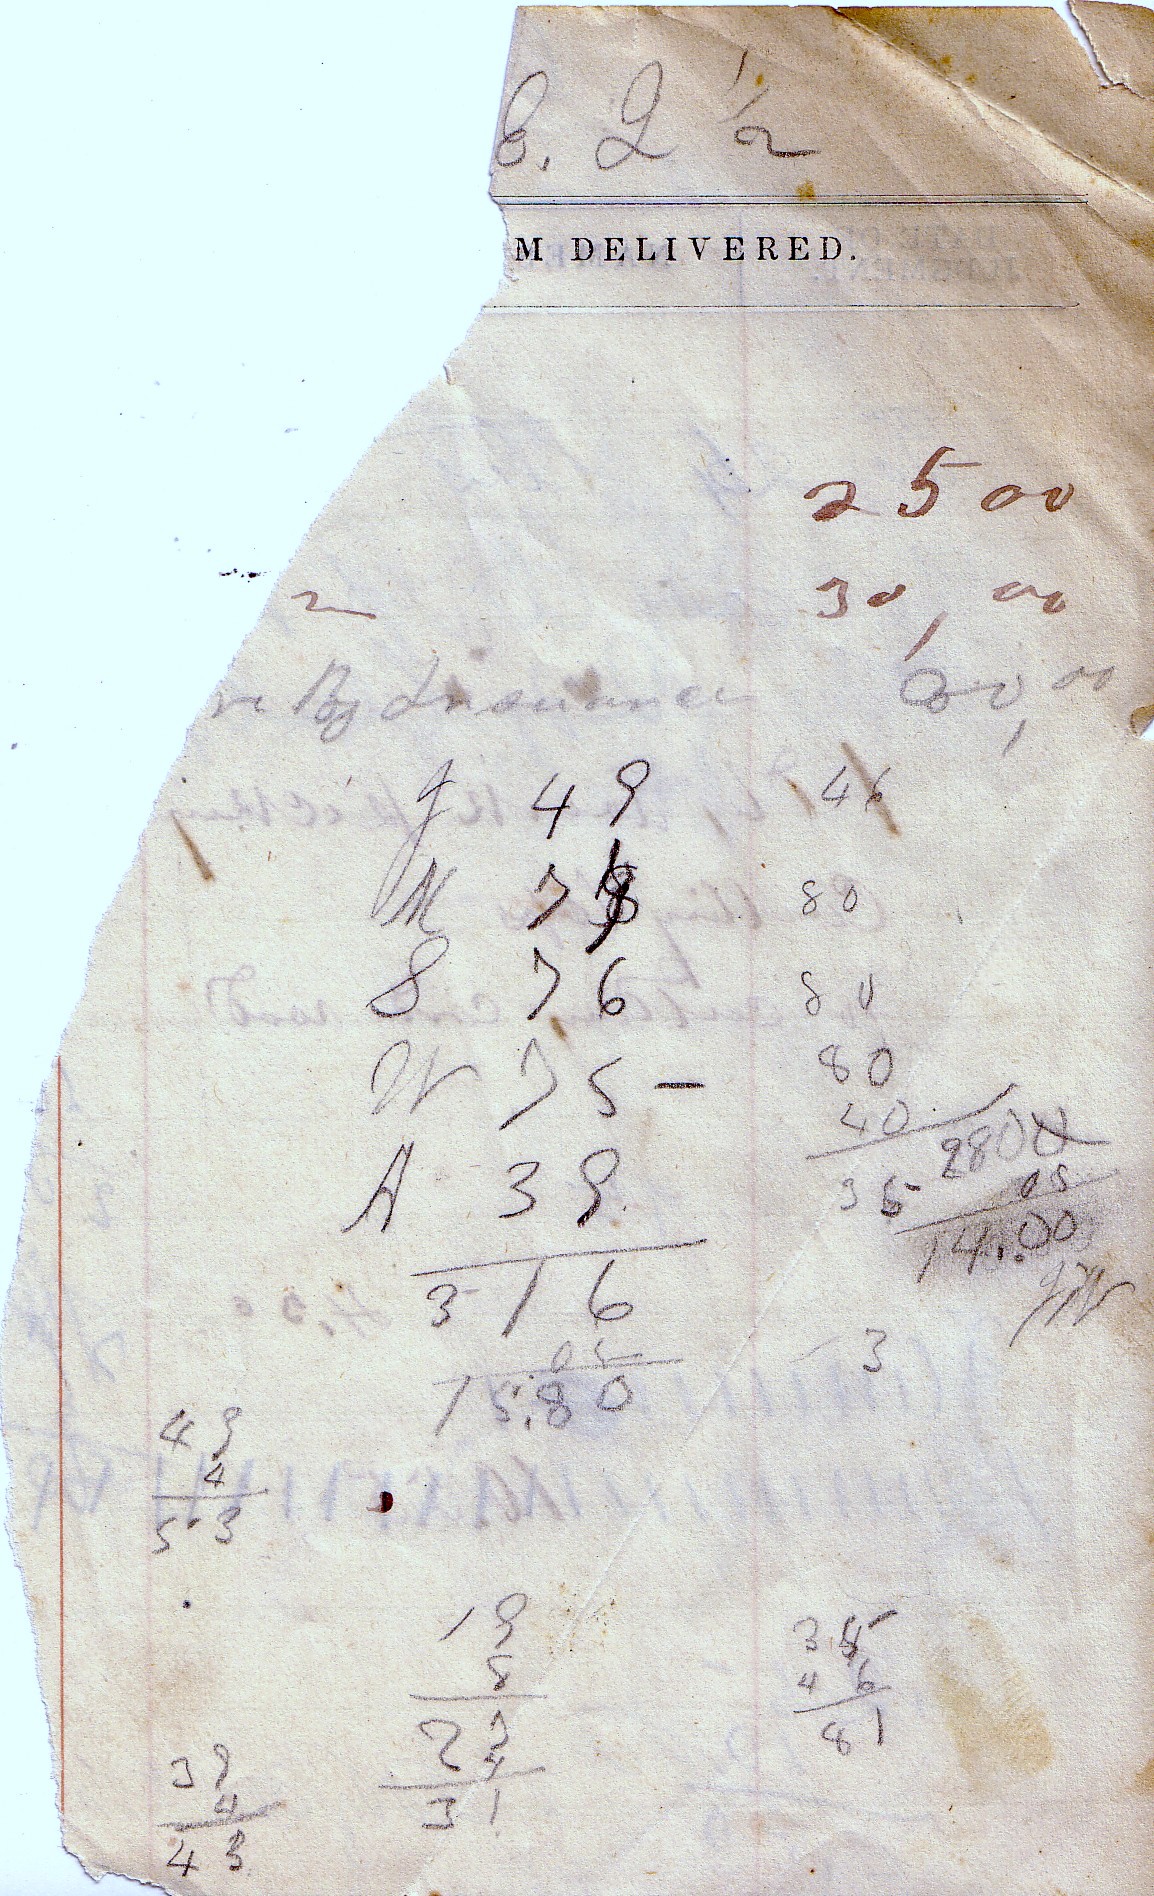 8. 2 1/2
M DELIVERED.
25 00
30, 00
By Insurance 20, 00
J 49 46
M 78 80
S 76 80
W 75 – 80
40
A 39 2800
35 05
14.00
316
05
15.80
3
49
4
53
19
8
27
4
31
35
46
81
39
4
43